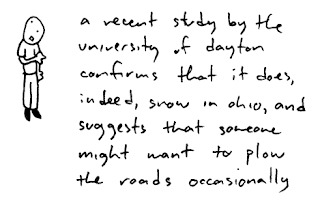 a recent study by the
university of dayton
confirms that it does,
indeed, snow in ohio, and
suggests that someone
might want to plow
the roads occasionally